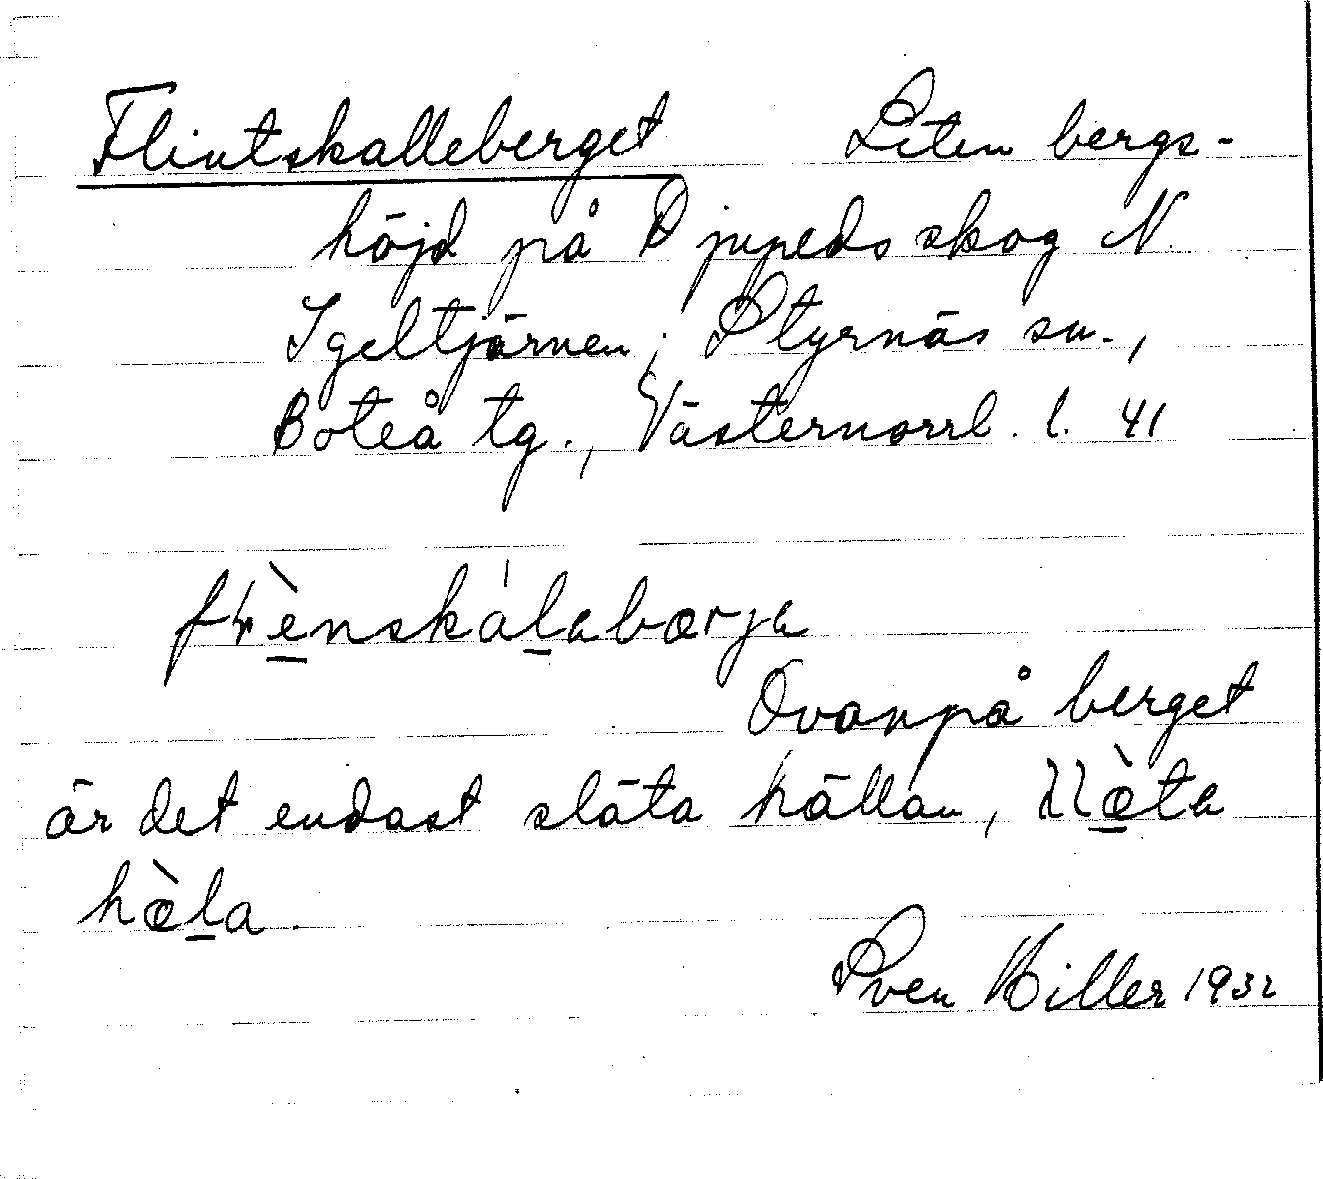 Flintskalleberget Liten bergs-
höjd på Djupeds skog N.
Igeltjärnen; Styrnäs sn.,
Boteå tg., Västernorrl. l. 41
Ovanpå berget
är det endast släta hällan,
hæ̀la.
Sven Hiller 1932